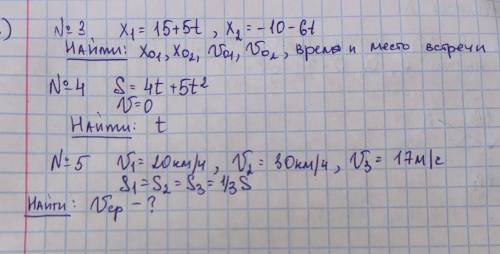 .)
№3 x₁ = 15+5t , x₂ = -10-6t
НАЙТИ: x₀₁, x₀₂, v₀₁, v₀₂, время и место встречи
№4 S = 4t + 5t²
v=0
НАЙТИ: t
№5 v₁ = 20км/ч, v₂ = 30км/ч, v₃ = 17м/с
S₁=S₂=S₃=1/3 S
НАЙТИ: vср - ?